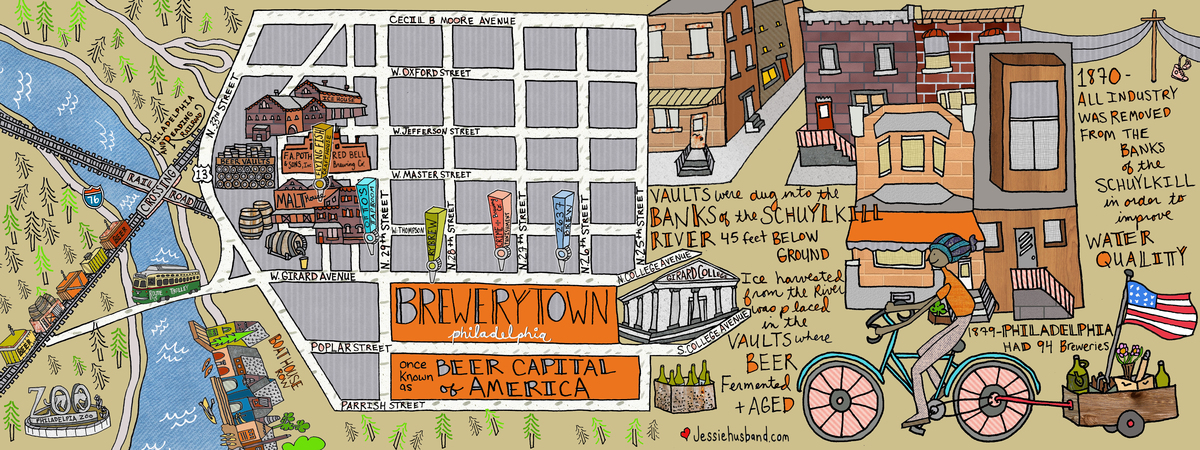 CECILL B MOORE AVENUE
W. OXFORD STREET
W. JEFFERSON STREET
W. MASTER STREET
W. THOMPSON
W. GIRARD AVENUE
POPLAR STREET
PARRISH STREET
N. 33rd STREET
N. 29th STREET
N. 28th STREET
N. 29th STREET
N. 26th STREET
N. 25th STREET
N. COLLEGE AVENUE
S. COLLEGE AVENUE
GIRARD COLLEGE
PHILADELPHIA
AND READING
RAILROAD
13
76
RAIL
ROAD
CROSSING
ICE HOUSE
BEER VAULTS
F.A. POTH
& SONS, Inc.
RED BELL
Brewing Co
FLYING FISH
MALT house
BEER
BEER
ZOO
PHILADELPIA ZOO
BOATHOUSE
ROW
BREWERYTOWN
philadelphia
once
known
as
BEER CAPITAL
of AMERICA
VAULTS were dug into the
BANKS of the SCHUYLKILL
RIVER 45 feet BELOW
GROUND
Ice harvested
from the River
was placed
in the
VAULTS where
BEER
Fermented
+ AGED
1870-
ALL INDUSTRY
WAS REMOVED
FROM THE
BANKS
of the
SCHUYLKILL
in order to
improve
WATER
QUALITY
1899-PHILADELPHIA
HAD 94 Breweries
Jessiehusband.com